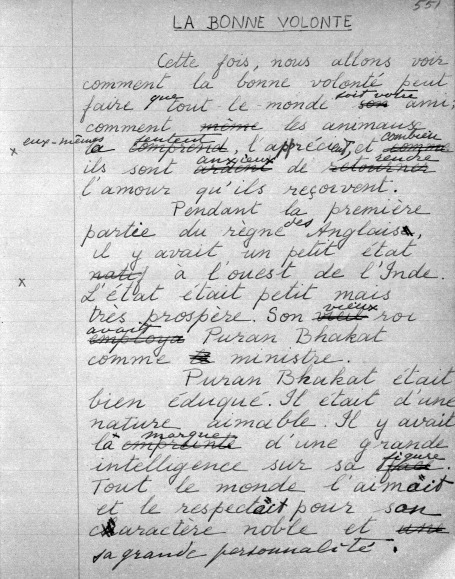 551
LA BONNE VOLONTE
Cette fois, nous allons voir
comment la bonne volonté peut
faire que tout le monde soit votre son ami;
comment même les animaux
x eux-mêmes la sentent comprend, l'apprécient, et combien comme
ils sont anxieux ardent de rendre retourner
l'amour qu'ils reçoivent.
Pendant la première
partie du règne des Anglais,
il y avait un petit état
x natif à l'ouest de l'Inde.
L'état était petit mais
très prospère. Son vieux vieil roi
avait employa Puran Bhakat
comme ministre.
Puran Bhakat était
bien éduqué. Il était d'une
nature aimable. Il y avait
la marque empreinte d'une grande
intelligence sur sa figure face.
Tout le monde l'aimait
et le respectait pour son
caractère noble et une
sa grande personnalité.